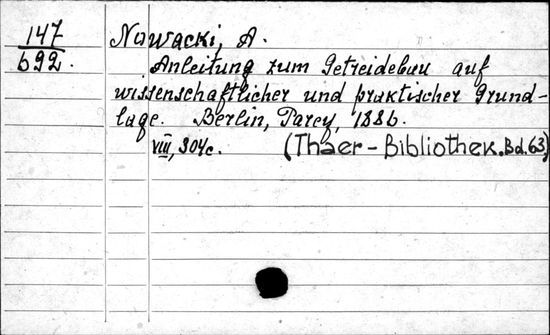 147
692.
Nowacki, A.
Anleitung zum Getreidebau auf
wissenschaftlicher und praktischer Grund-
lage. Berlin, Parey, 1886.
VIII, 304c. (Thaer-Bibliothek. Bd. 63)